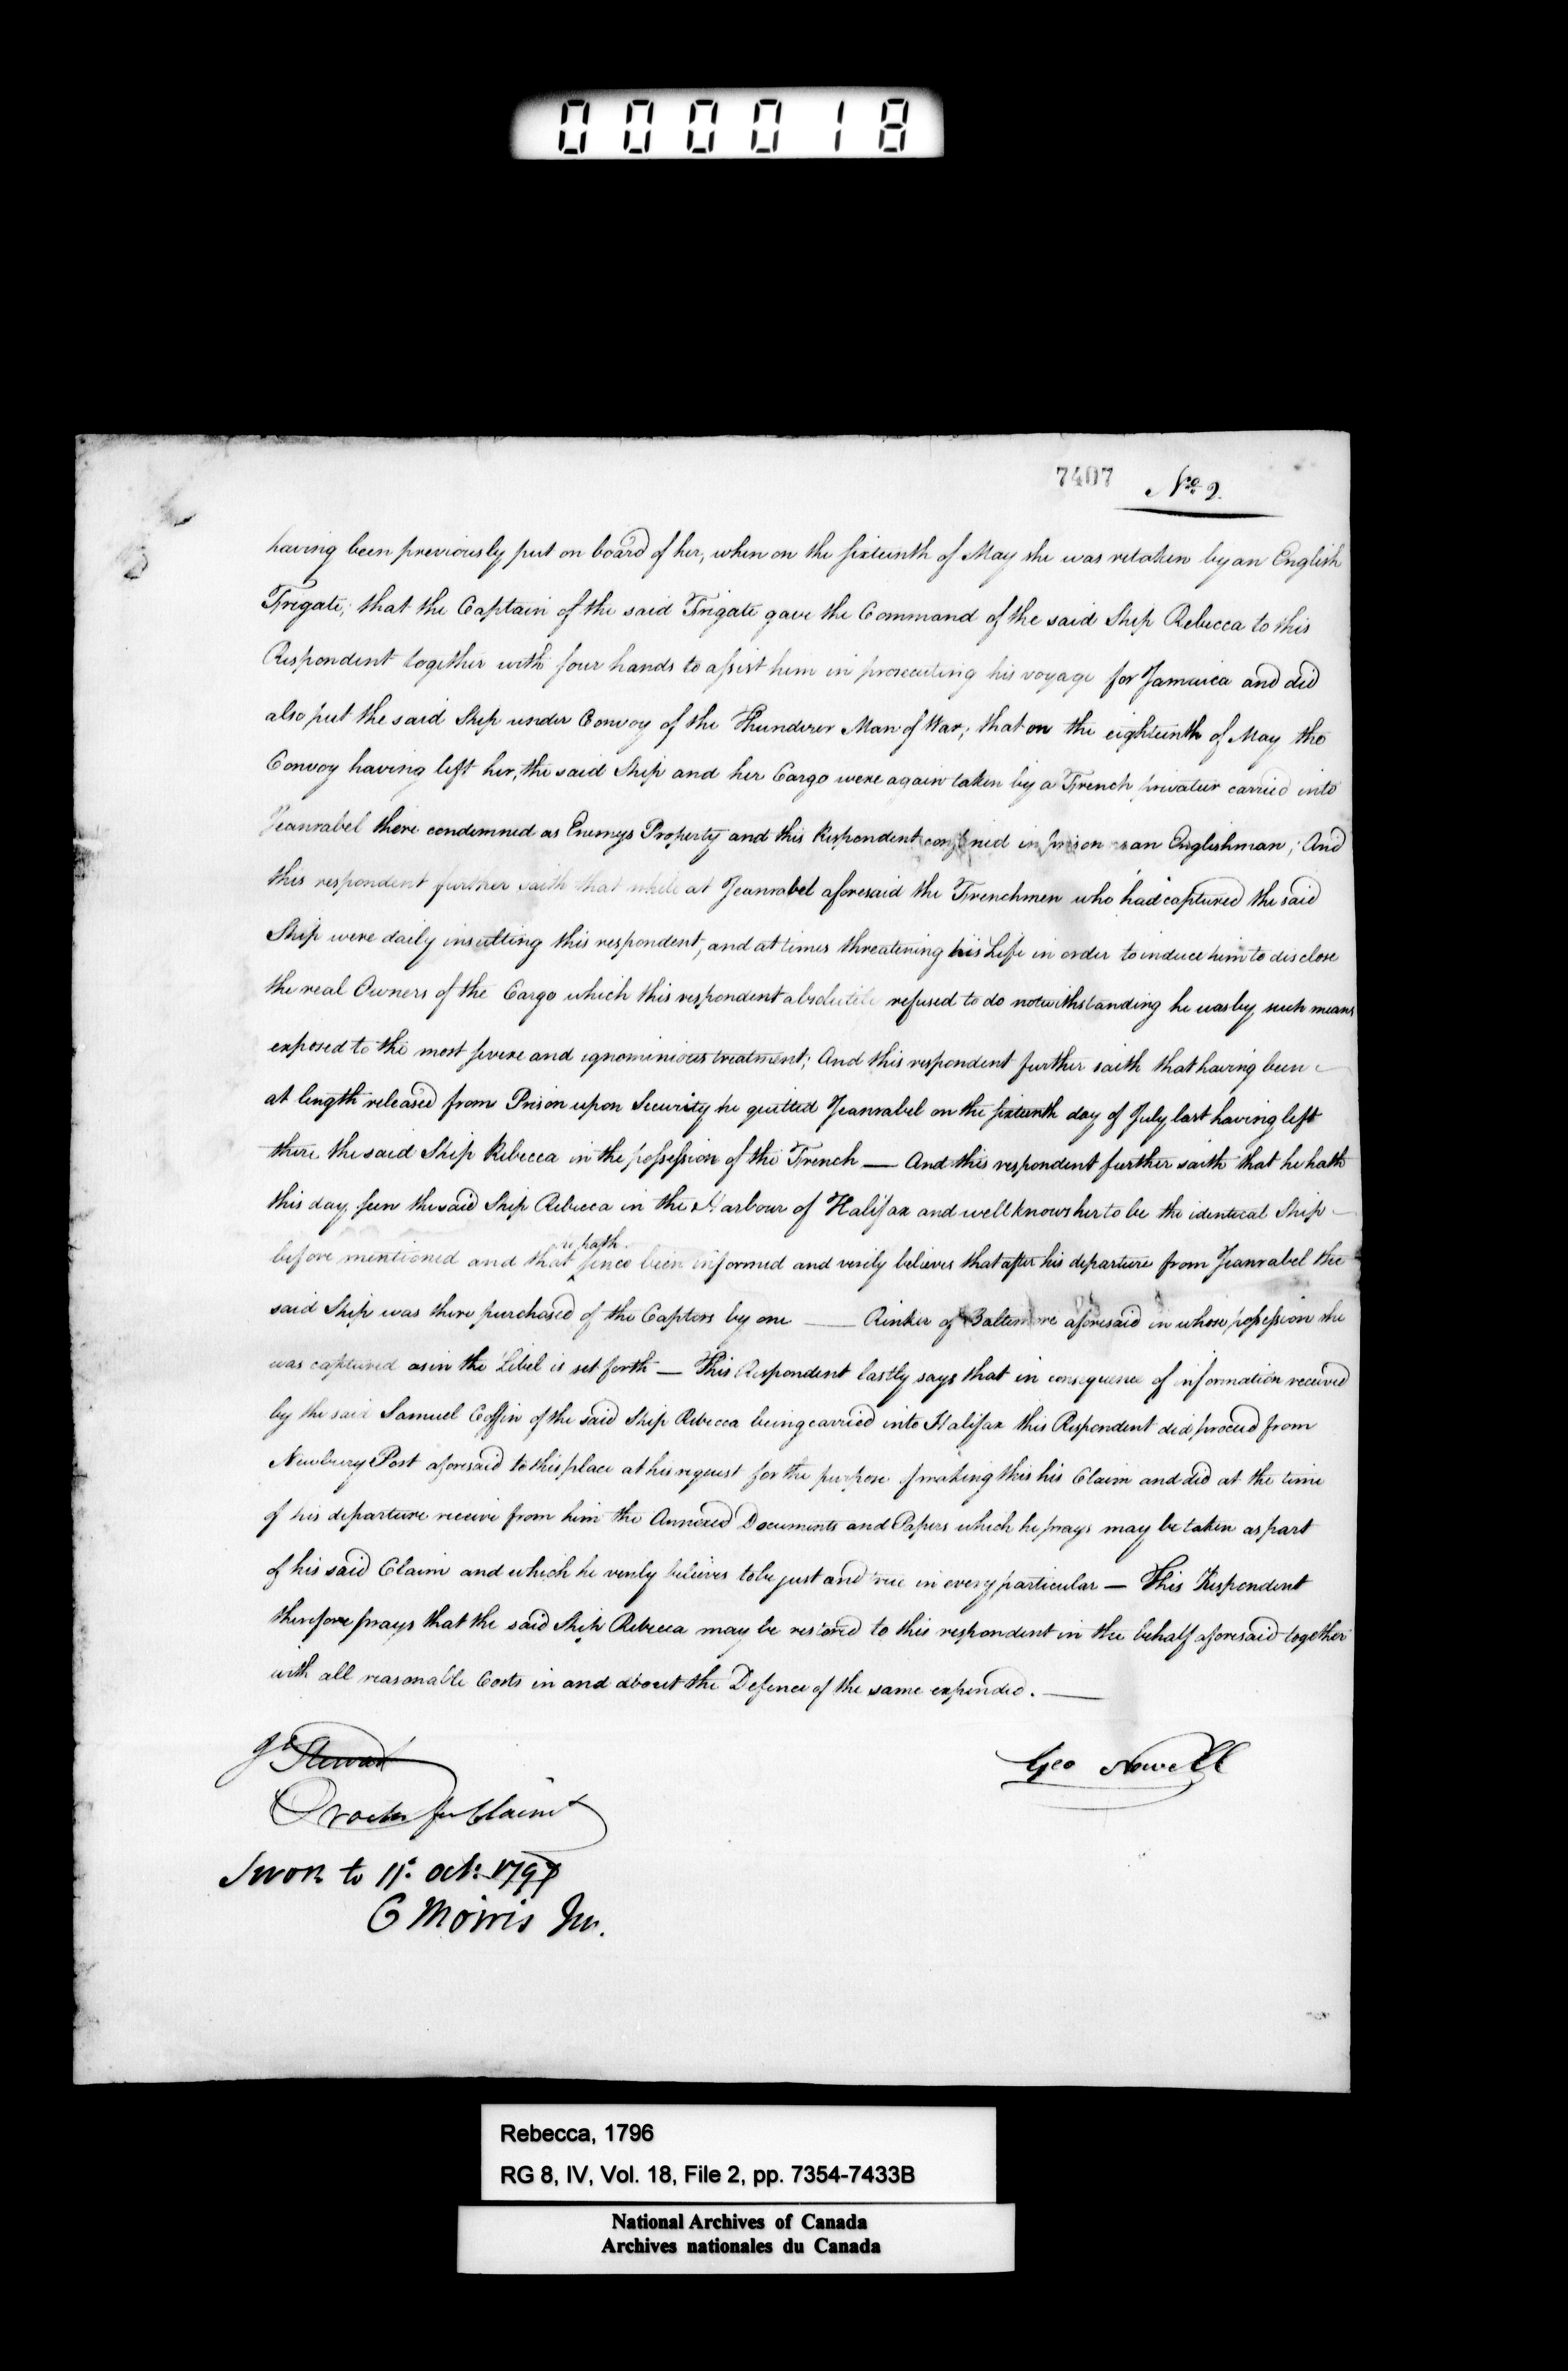 000018
7407 No. 2.
having been previously put on board of her, when on the sixteenth of May she was retaken by an English
Frigate; that the Captain of the said Frigate gave the Command of the said Ship Rebecca to this
Respondent together with four hands to assist him in prosecuting his voyage for Jamaica and did
also put the said Ship under Convoy of the Thunderer Man of War; that on the eighteenth of May the
Convoy having left her, the said Ship and her Cargo were again taken by a French privateer carried into
Jeanrabel there condemned as Enemys Property and this Respondent confined in prison as an Englishman; And
this respondent further saith that while at Jeanrabel aforesaid the Frenchmen who had captured the said
Ship were daily insulting this respondent, and at times threatening his Life in order to induce him to disclose
the real Owners of the Cargo which this respondent absolutely refused to do notwithstanding he was by such means
exposed to the most severe and ignominious treatment; And this respondent further saith that having been
at length released from Prison upon Security he quitted Jeanrabel on the sixteenth day of July last having left
there the said Ship Rebecca in the possession of the French — And this respondent further saith that he hath
this day seen the said Ship Rebecca in the Harbour of Halifax and well knows her to be the identical Ship
he hath
before mentioned and that since been informed and verily believes that after his departure from Jeanrabel the
said Ship was there purchased of the Captors by one —— Rinker of Baltimore aforesaid in whose possession she
was captured as in the Libel is set forth — This Respondent lastly says that in consequence of information received
by the said Samuel Coffin of the said Ship Rebecca being carried into Halifax this Respondent did proceed from
Newbury Port aforesaid to this place at his request for the purpose of making this his Claim and did at the time
of his departure receive from him the Annexed Documents and Papers which he prays may be taken as part
of his said Claim and which he verily believes to be just and true in every particular — This Respondent
therefore prays that the said Ship Rebecca may be restored to this respondent in the behalf aforesaid together
with all reasonable Costs in and about the Defence of the same expended. —
Stewart
Geo Nowell
Proctor for Claimt
Sworn to 11th. Oct: 1797
C Morris Jur.
Rebecca, 1796
RG 8, IV, Vol. 18, File 2, pp. 7354-7433B
National Archives of Canada
Archives nationales du Canada